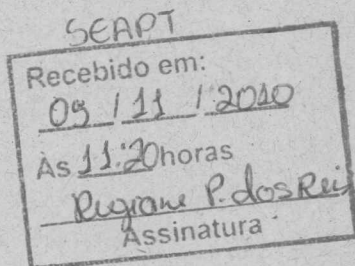 SEAPT
Recebido em:
09 / 11 / 2010
Às 11:20 horas
Regiane P. dos Reis
Assinatura